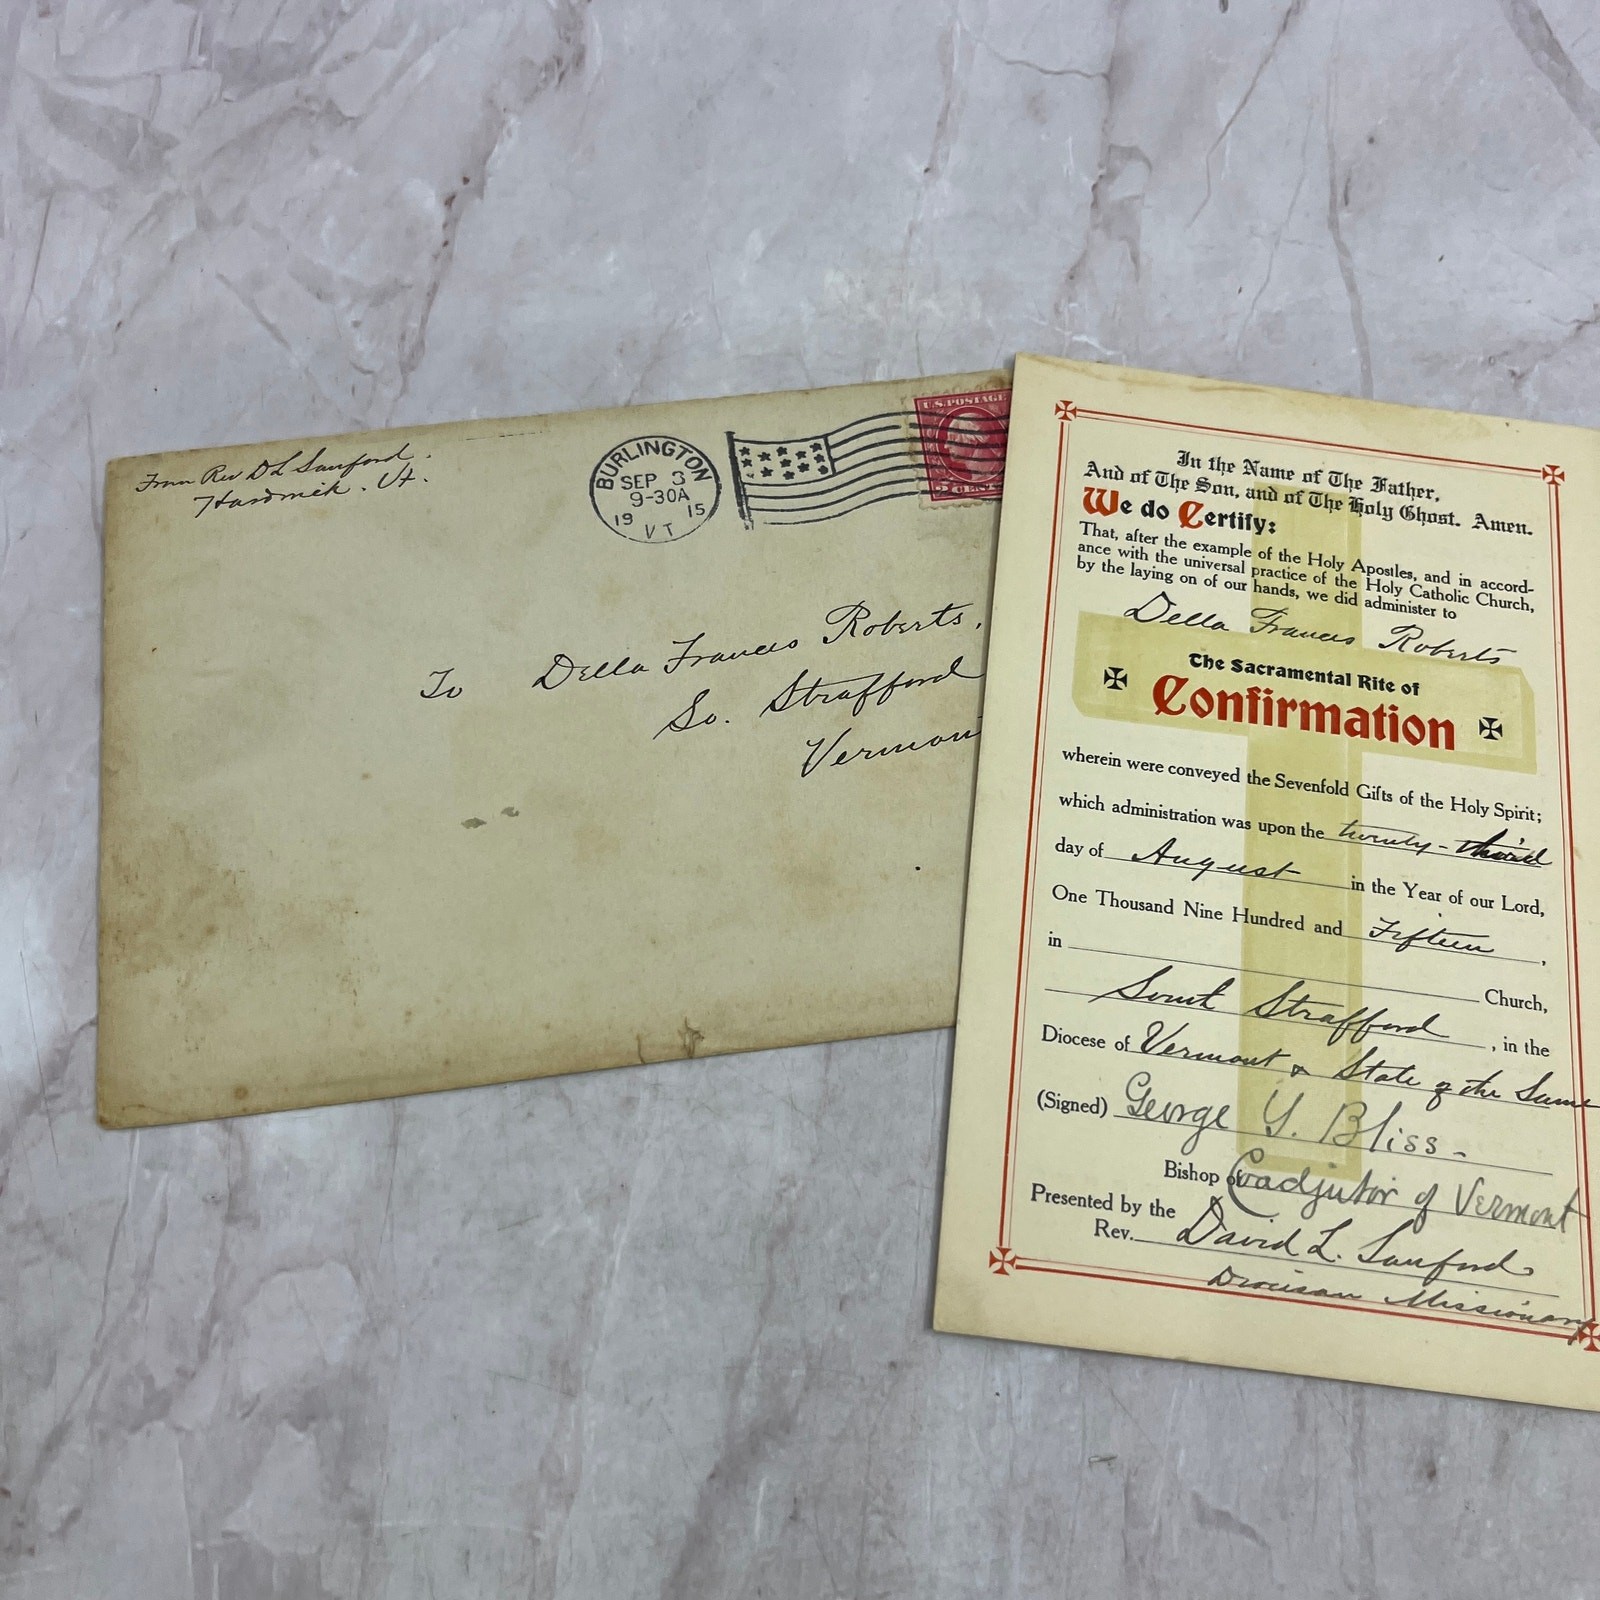 From Rev D L Sanford.
Hardwick. Vt.
BURLINGTON
SEP 3
9-30A
19 15
VT
U.S. POSTAGE
2 CENTS
To Della Frances Roberts,
So. Strafford
Vermont
In the Name of The Father,
And of The Son, and of The Holy Ghost. Amen.
We do Certify:
That, after the example of the Holy Apostles, and in accord-
ance with the universal practice of the Holy Catholic Church,
by the laying on of our hands, we did administer to
Della Frances Roberts
The Sacramental Rite of
Confirmation
wherein were conveyed the Sevenfold Gifts of the Holy Spirit;
which administration was upon the twenty-third
day of August in the Year of our Lord,
One Thousand Nine Hundred and Fifteen,
in
Church,
South Strafford, in the
Diocese of Vermont & State of the Same
(Signed) George Y. Bliss-
Bishop of Coadjutor of Vermont
Presented by the
Rev. David L. Sanford
Diocesan Missionary